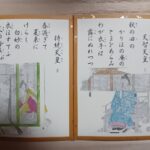 天智天皇
秋の田の
かりほの庵の
とまをあらみ
わが衣手は
露にぬれつつ
持統天皇
春過ぎて
夏来に
けらし
白妙の